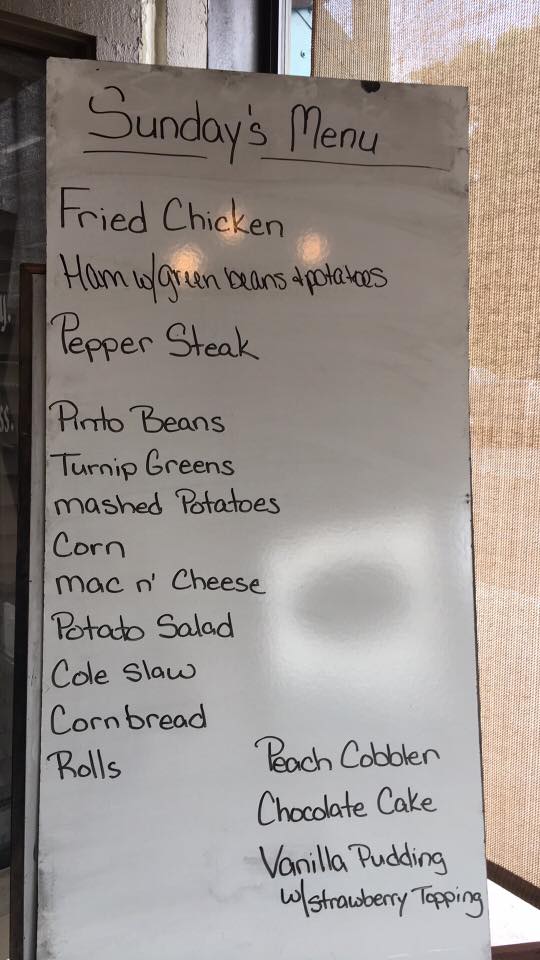 Sunday's Menu
Fried Chicken
Ham w/green beans & potatoes
Pepper Steak
Pinto Beans
Turnip Greens
mashed Potatoes
Corn
mac n' Cheese
Potato Salad
Cole Slaw
Cornbread
Rolls
Peach Cobbler
Chocolate Cake
Vanilla Pudding
w/strawberry Topping